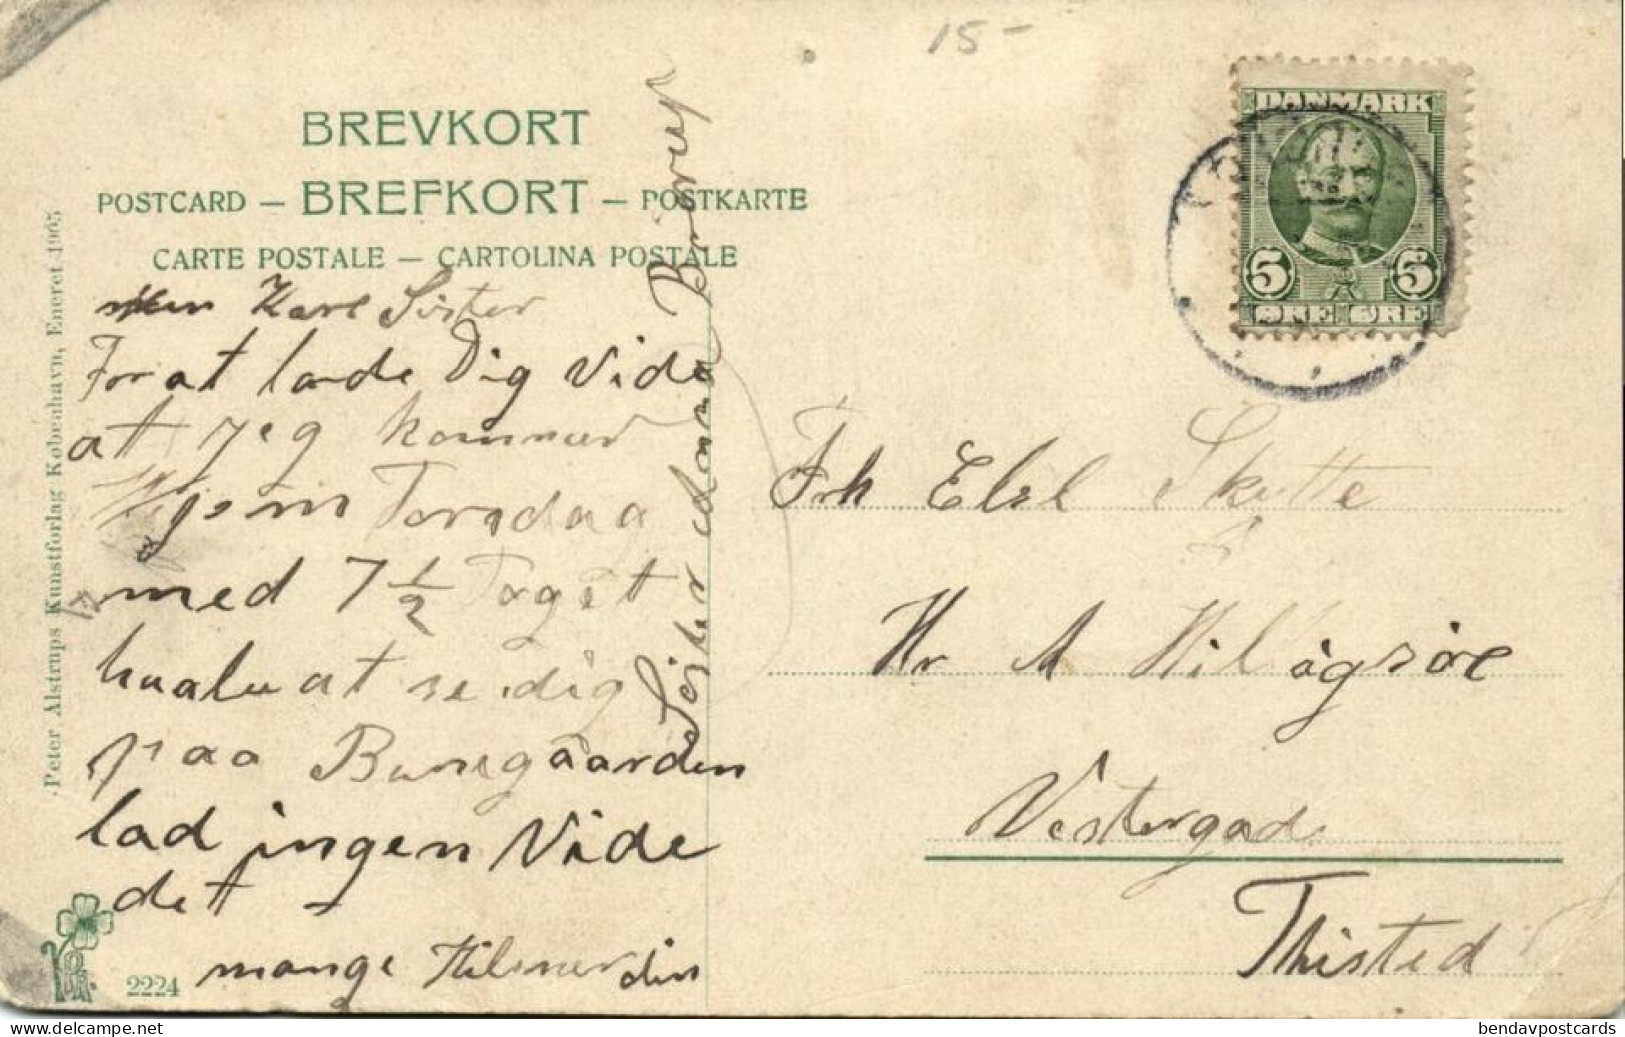 15-
BREVKORT
POSTCARD — BREFKORT — POSTKARTE
CARTE POSTALE — CARTOLINA POSTALE
Peter Alstrups Kunstforlag København, Eneret 1905
DANMARK
5 5
ØRE ØRE
Kære Sister
For at lade Dig Vide
at jeg kommer
Hjem Torsdag
med 7 1/2 Toget
at se dig
paa Bunegaarden
lad ingen Vide
det
mange Hilsner din
Søster Anna Brørup
Frk Elsl Skøtte
Hr M
Vestergade
Thisted
2224
bendavpostcards.com
bendavpostcards